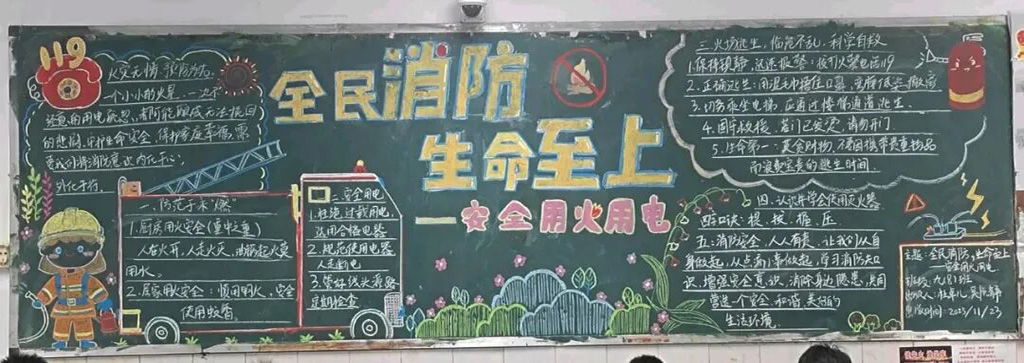 119
火灾无情 预防为先
一个小小的火星,一次不
经意的用电疏忽,都可能酿成无法挽回
的悲剧,守护生命安全,保护家庭幸福,需
要我们将消防意识内化于心,
外化于行。
全民消防
生命至上
——安全用火用电
一、防范于未"燃"
1.厨房用火安全(重中之重)
人在火开,人走火灭,油锅起火莫
用水。
2.居家用火安全:慎用明火,安全
使用蚊香
二、安全用电
1.杜绝过载用电,
选用合格电器
2.规范使用电器
人走断电
3.管好线头着路
定期检查
三、火场逃生,临危不乱,科学自救
1.保持镇静,迅速报警:拨打火警电话119
2.正确逃生:用湿毛巾捂住口鼻,
3.切勿乘坐电梯,应通过楼梯通道逃生。
4.固守救援:若门已发烫,请勿开门
5.生命第一:莫贪财物,不要因携带贵重物品
而浪费宝贵的逃生时间.
四、认识并学会使用灭火器
口诀:提、拔、握、压
五:消防安全,人人有责,让我们从自
身做起,从点滴小事做起,学习消防知
识,增强安全意识,消除身边隐患,共同
营造一个安全、和谐、美好的
生活环境.
主题:全民消防,生命至上
安全用火用电
班级:九(8)班
出版时间:2025/11/23